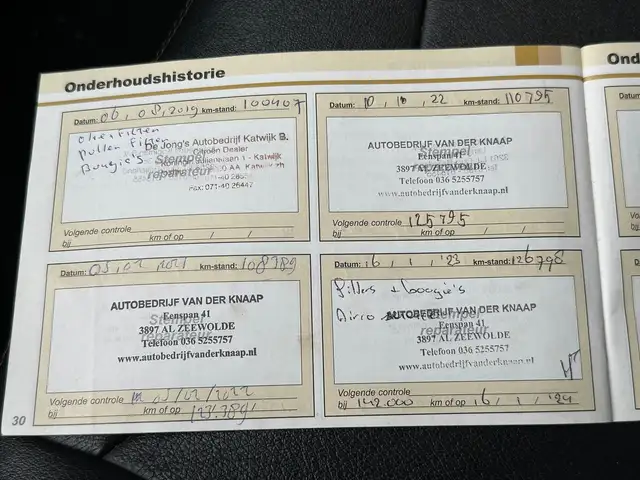 Onderhoudshistorie
Datum: 06, 08, 2019 km-stand: 100407
Oliefilter
Pollen Filter
Bougie's
De Jong's Autobedrijf Katwijk B.
Citroën Dealer
1 - Katwijk
Fax: 071-40 26442
Stempel
reparateur
Volgende controle
bij km of op / /
Datum: 10, 10, 22 km-stand: 110795
AUTOBEDRIJF VAN DER KNAAP
Eenspan 41
3897 AL ZEEWOLDE
Telefoon 036 5255757
www.autobedrijfvanderknaap.nl
Volgende controle 125795
bij km of op / /
Datum: 03, 02, 2021 km-stand: 108389
AUTOBEDRIJF VAN DER KNAAP
Eenspan 41
3897 AL ZEEWOLDE
Stempel
reparateur
Telefoon 036 5255757
www.autobedrijfvanderknaap.nl
Volgende controle 03/02/2022
bij km of op 123.389
Datum: 16, 1, '23 km-stand: 126798
Filters + bougie's
Airco
AUTOBEDRIJF VAN DER KNAAP
Eenspan 41
3897 AL ZEEWOLDE
Stempel
reparateur
Telefoon 036 5255757
www.autobedrijfvanderknaap.nl
Volgende controle
bij 142.000 km of op 16, 1, '24
30
Ond
Datum:
Volgende
bij
Datum:
Volgende
bij